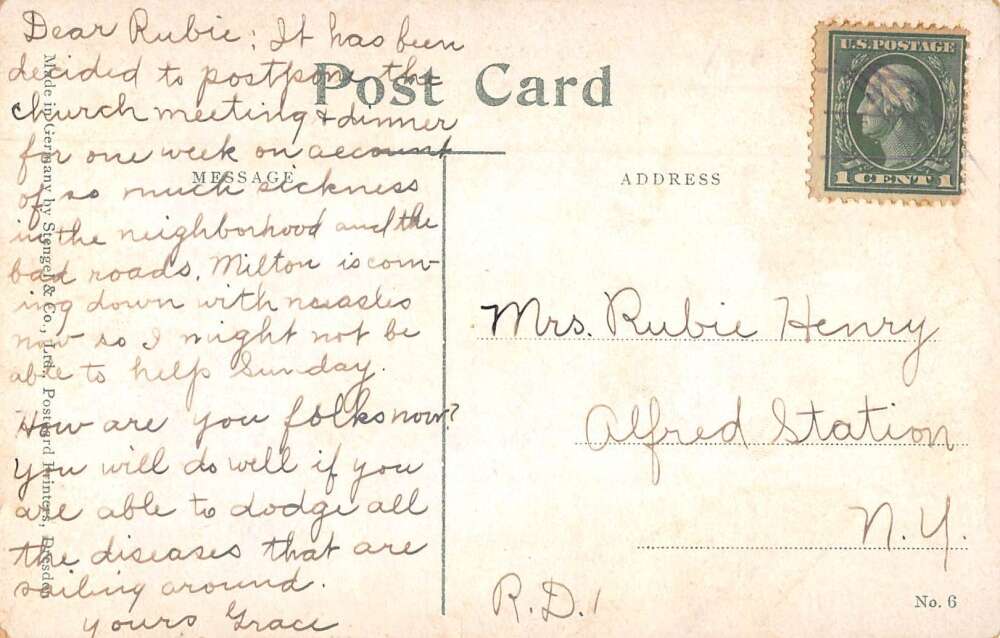 Dear Rubie: It has been
decided to postpone the
church meeting & dinner
for one week on account
of so much sickness
in the neighborhood and the
bad roads. Milton is com-
ing down with measles
now so I might not be
able to help Sunday.
How are you folks now?
You will do well if you
are able to dodge all
the diseases that are
sailing around.
Yours Grace
Post Card
MESSAGE
ADDRESS
U.S. POSTAGE
1 CENT 1
Mrs. Rubie Henry
Alfred Station
N.Y.
R.D.1
No. 6
Made in Germany by Stengel & Co., Ltd., Postcard Printers, Dresden